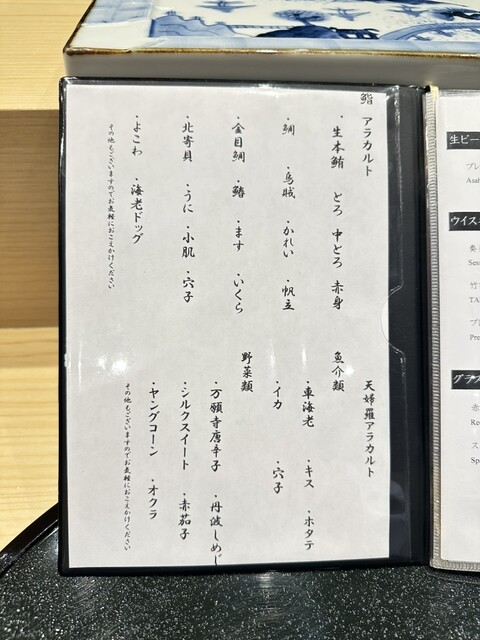 鮨 アラカルト
・生本鮪 とろ 中とろ 赤身
・鯛 ・烏賊 ・かれい ・帆立
・金目鯛 ・鰆 ・ます ・いくら
・北寄貝 ・うに ・小肌 ・穴子
・よこわ ・海老ドッグ
その他もございますのでお気軽におこえかけください
天婦羅アラカルト
魚介類
・車海老 ・キス ・ホタテ
・イカ ・穴子
野菜類
・万願寺唐辛子 ・丹波しめじ
・シルクスイート ・赤茄子
・ヤングコーン ・オクラ
その他もございますのでお気軽におこえかけください
生ビー
プレ
Asah
ウイス
Sun
竹
TA
プ
Pre
グラス
赤
Re
ス
Spa